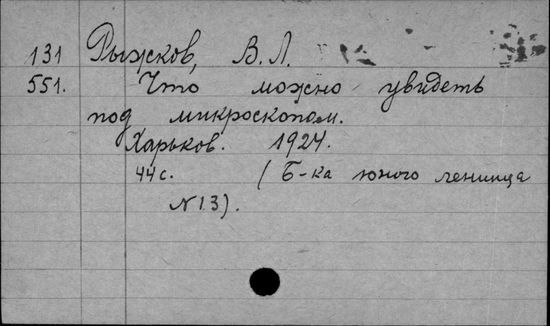 131 Рыжков, В.Л.
551. Что можно увидеть
под микроскопом.
Харьков. 1924.
44с. (Б-ка юного ленинца
№13).